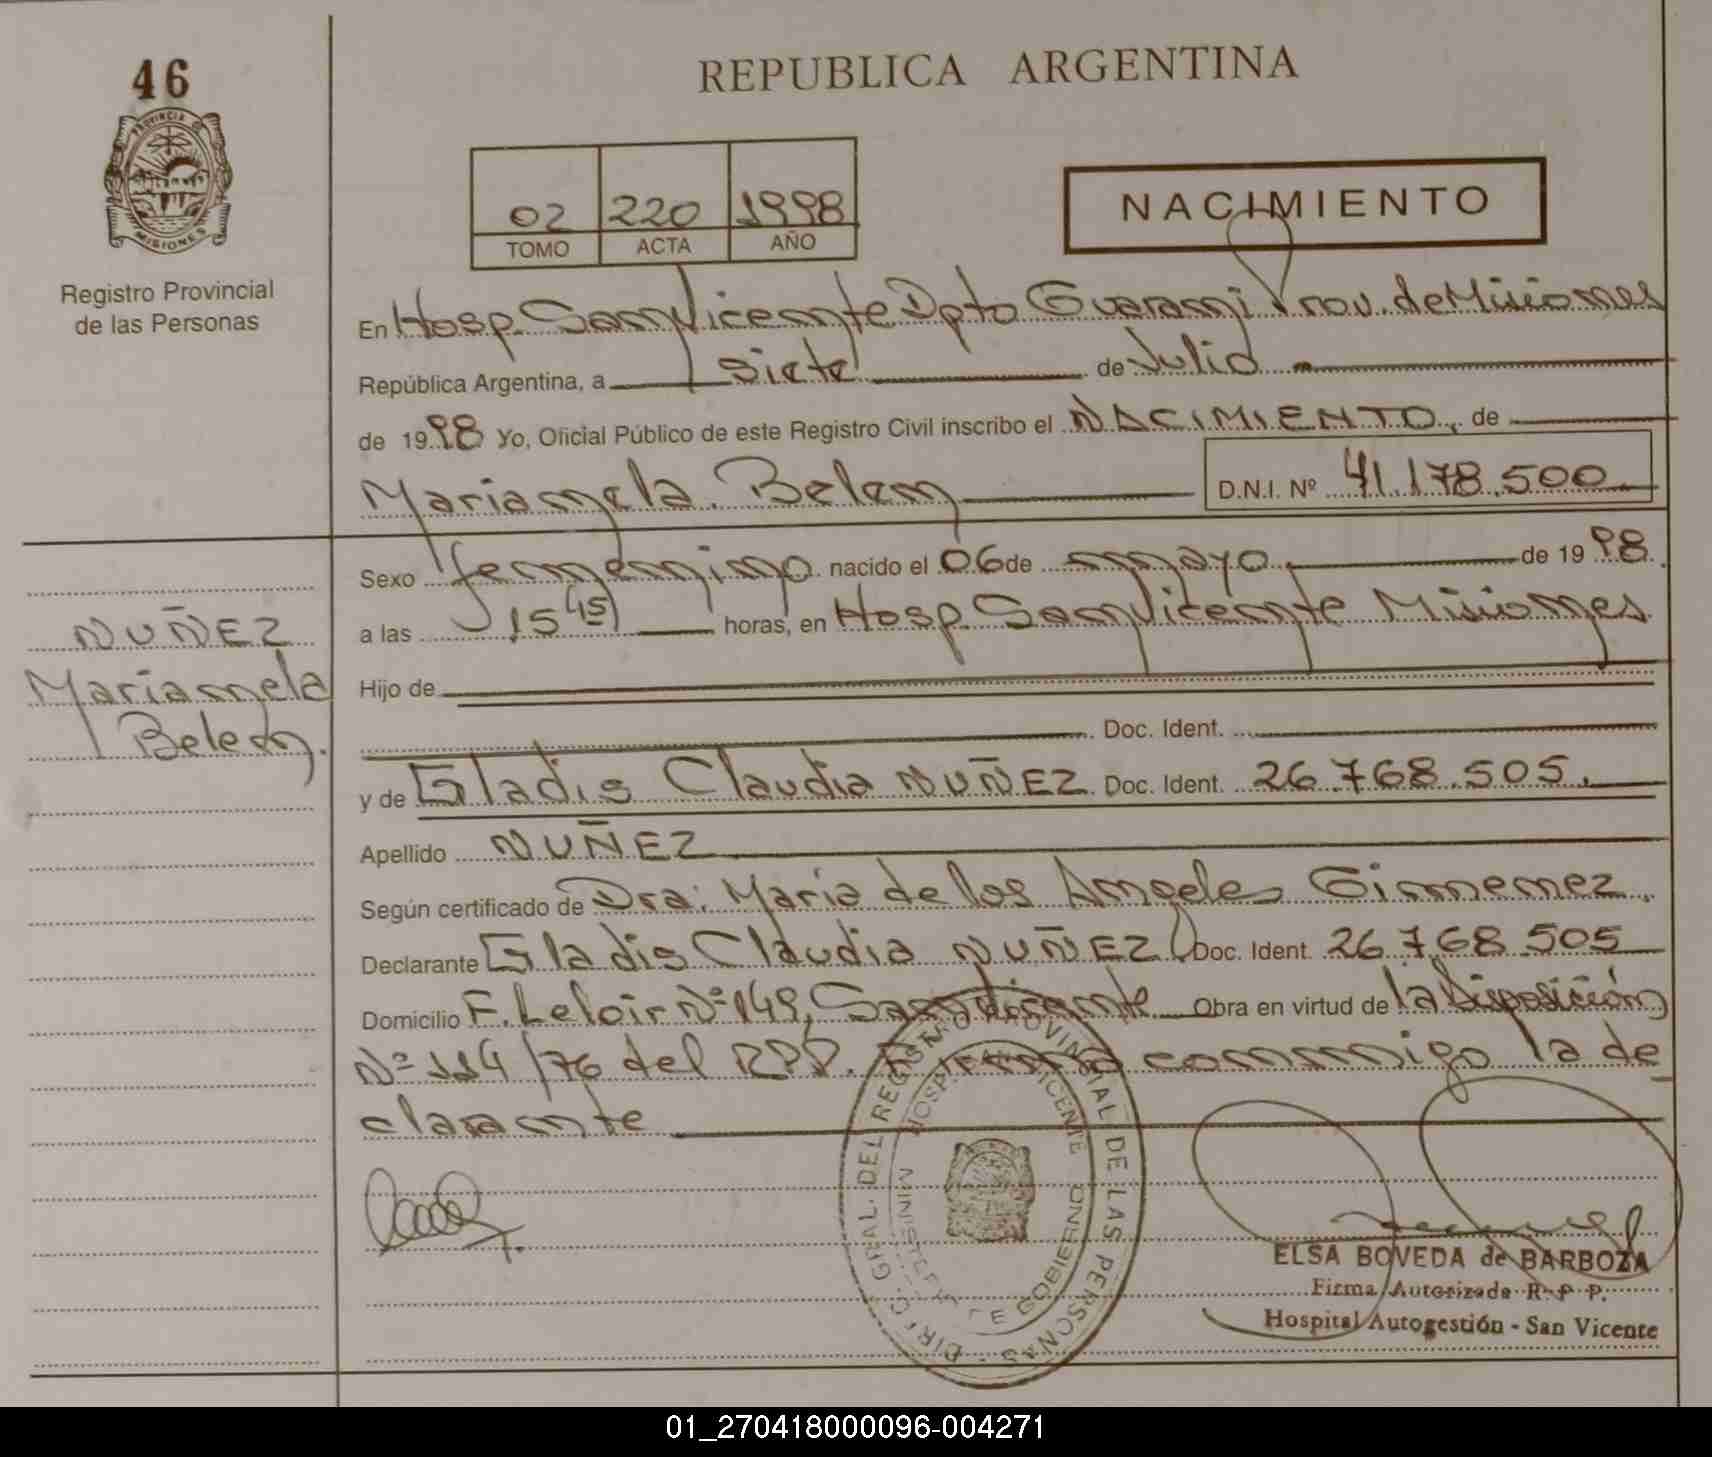 46
PROVINCIA DE
MISIONES
Registro Provincial
de las Personas
REPUBLICA ARGENTINA
02 220 1998
TOMO ACTA AÑO
NACIMIENTO
En Hosp. San Vicente Dpto Guarani Prov. de Misiones
República Argentina, a siete de Julio
de 1998 Yo, Oficial Público de este Registro Civil inscribo el NACIMIENTO, de
Mariangela Belen D.N.I. Nº 41.178.500
Sexo femenino nacido el 06 de mayo de 1998.
a las 15 45 horas, en Hosp. San Vicente Misiones.
NUÑEZ
Mariangela
Belen.
Hijo de
Doc. Ident.
y de Gladis Claudia NUÑEZ Doc. Ident. 26.768.505.
Apellido NUÑEZ
Según certificado de Dra. Maria de los Angeles Gimenez.
Declarante Gladis Claudia NUÑEZ Doc. Ident. 26.768.505
Domicilio F. Leloir Nº 149, San Vicente Obra en virtud de la Disposición
Nº 114/76 del RPP. Firma conmigo la de
clarante
DIREC. GRAL. DEL REGISTRO PROVINCIAL DE LAS PERSONAS
HOSP. SAN VICENTE
MINISTERIO DE GOBIERNO
ELSA BOVEDA de BARBOZA
Firma Autorizada R. P. P.
Hospital Autogestión - San Vicente
01_270418000096-004271